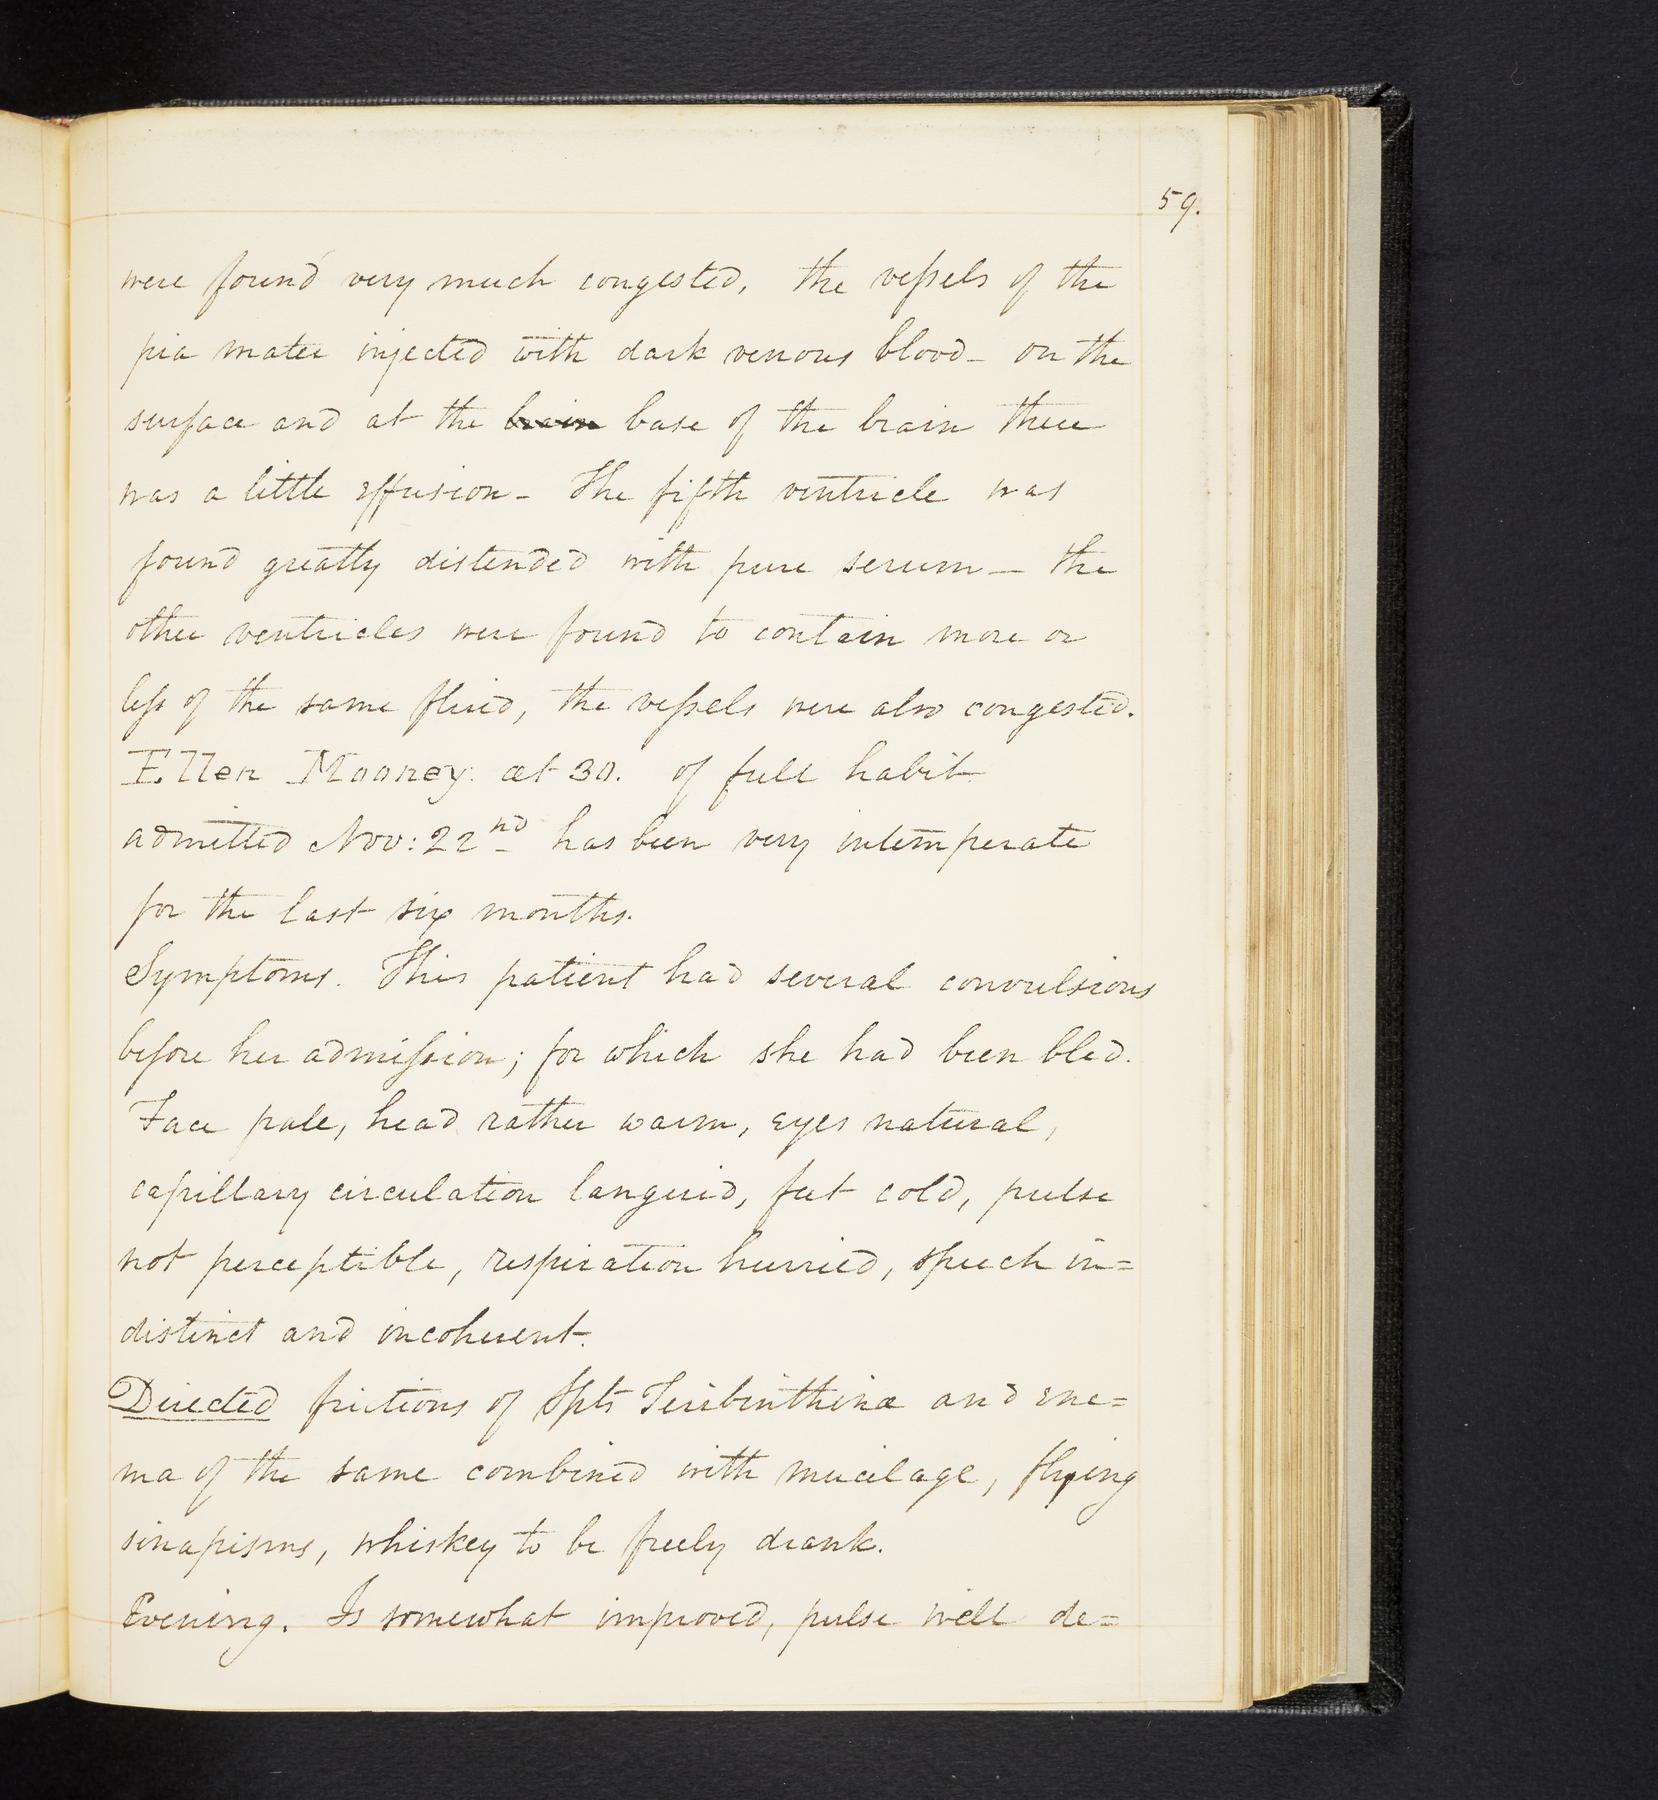 59.
were found very much congested, the veſsels of the
pia mater injected with dark venous blood - on the
surface and at the brain base of the brain there
was a little effusion - The fifth ventricle was
found greatly distended with pure serum - the
other ventricles were found to contain more or
leſs of the same fluid, the veſsels were also congested.
Ellen Mooney. æt 30. of full habit
admitted Nov: 22nd has been very intemperate
for the last six months.
Symptoms. This patient had several convulsions
before her admiſsion; for which she had been bled.
Face pale, head rather warm, eyes natural,
capillary circulation languid, feet cold, pulse
not perceptible, respiration hurried, speech in=
distinct and incoherent.
Directed frictions of Spts Teribinthinæ and ene=
ma of the same combined with mucilage, flying
sinapisms, whiskey to be freely drank.
Evening. Is somewhat improved, pulse well de=